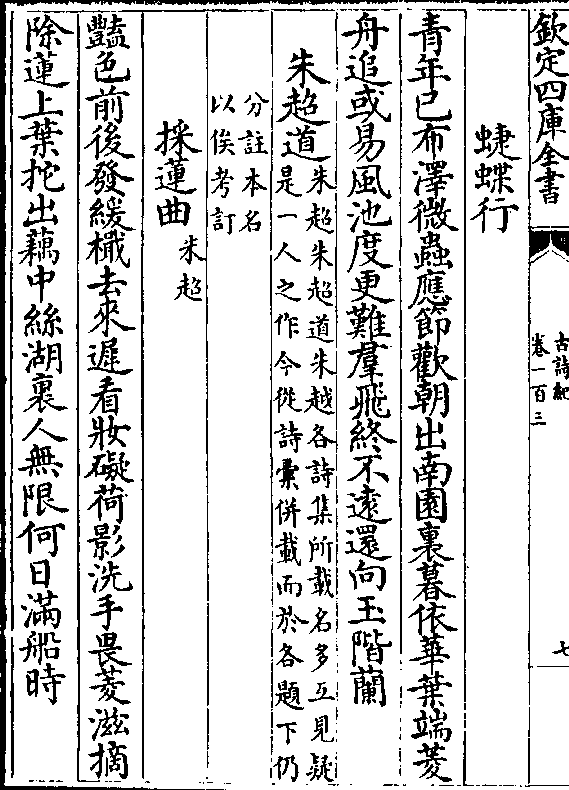 欽定四庫全書
古詩紀
卷一百三
七
蜨蝶行
青年已布澤微蟲應節歡朝出南園裏暮依華葉端菱
舟追或易風池度更難羣飛終不遠還向玉階蘭
朱超道朱超朱超道朱越各詩集所載名多互見疑
是一人之作今從詩彙併載而於各題下仍
分註本名
以俟考訂
採蓮曲朱超
豔色前後發緩檝去來遲看妝礙荷影洗手畏菱滋摘
除蓮上葉拕出藕中絲湖裏人無限何日滿船時